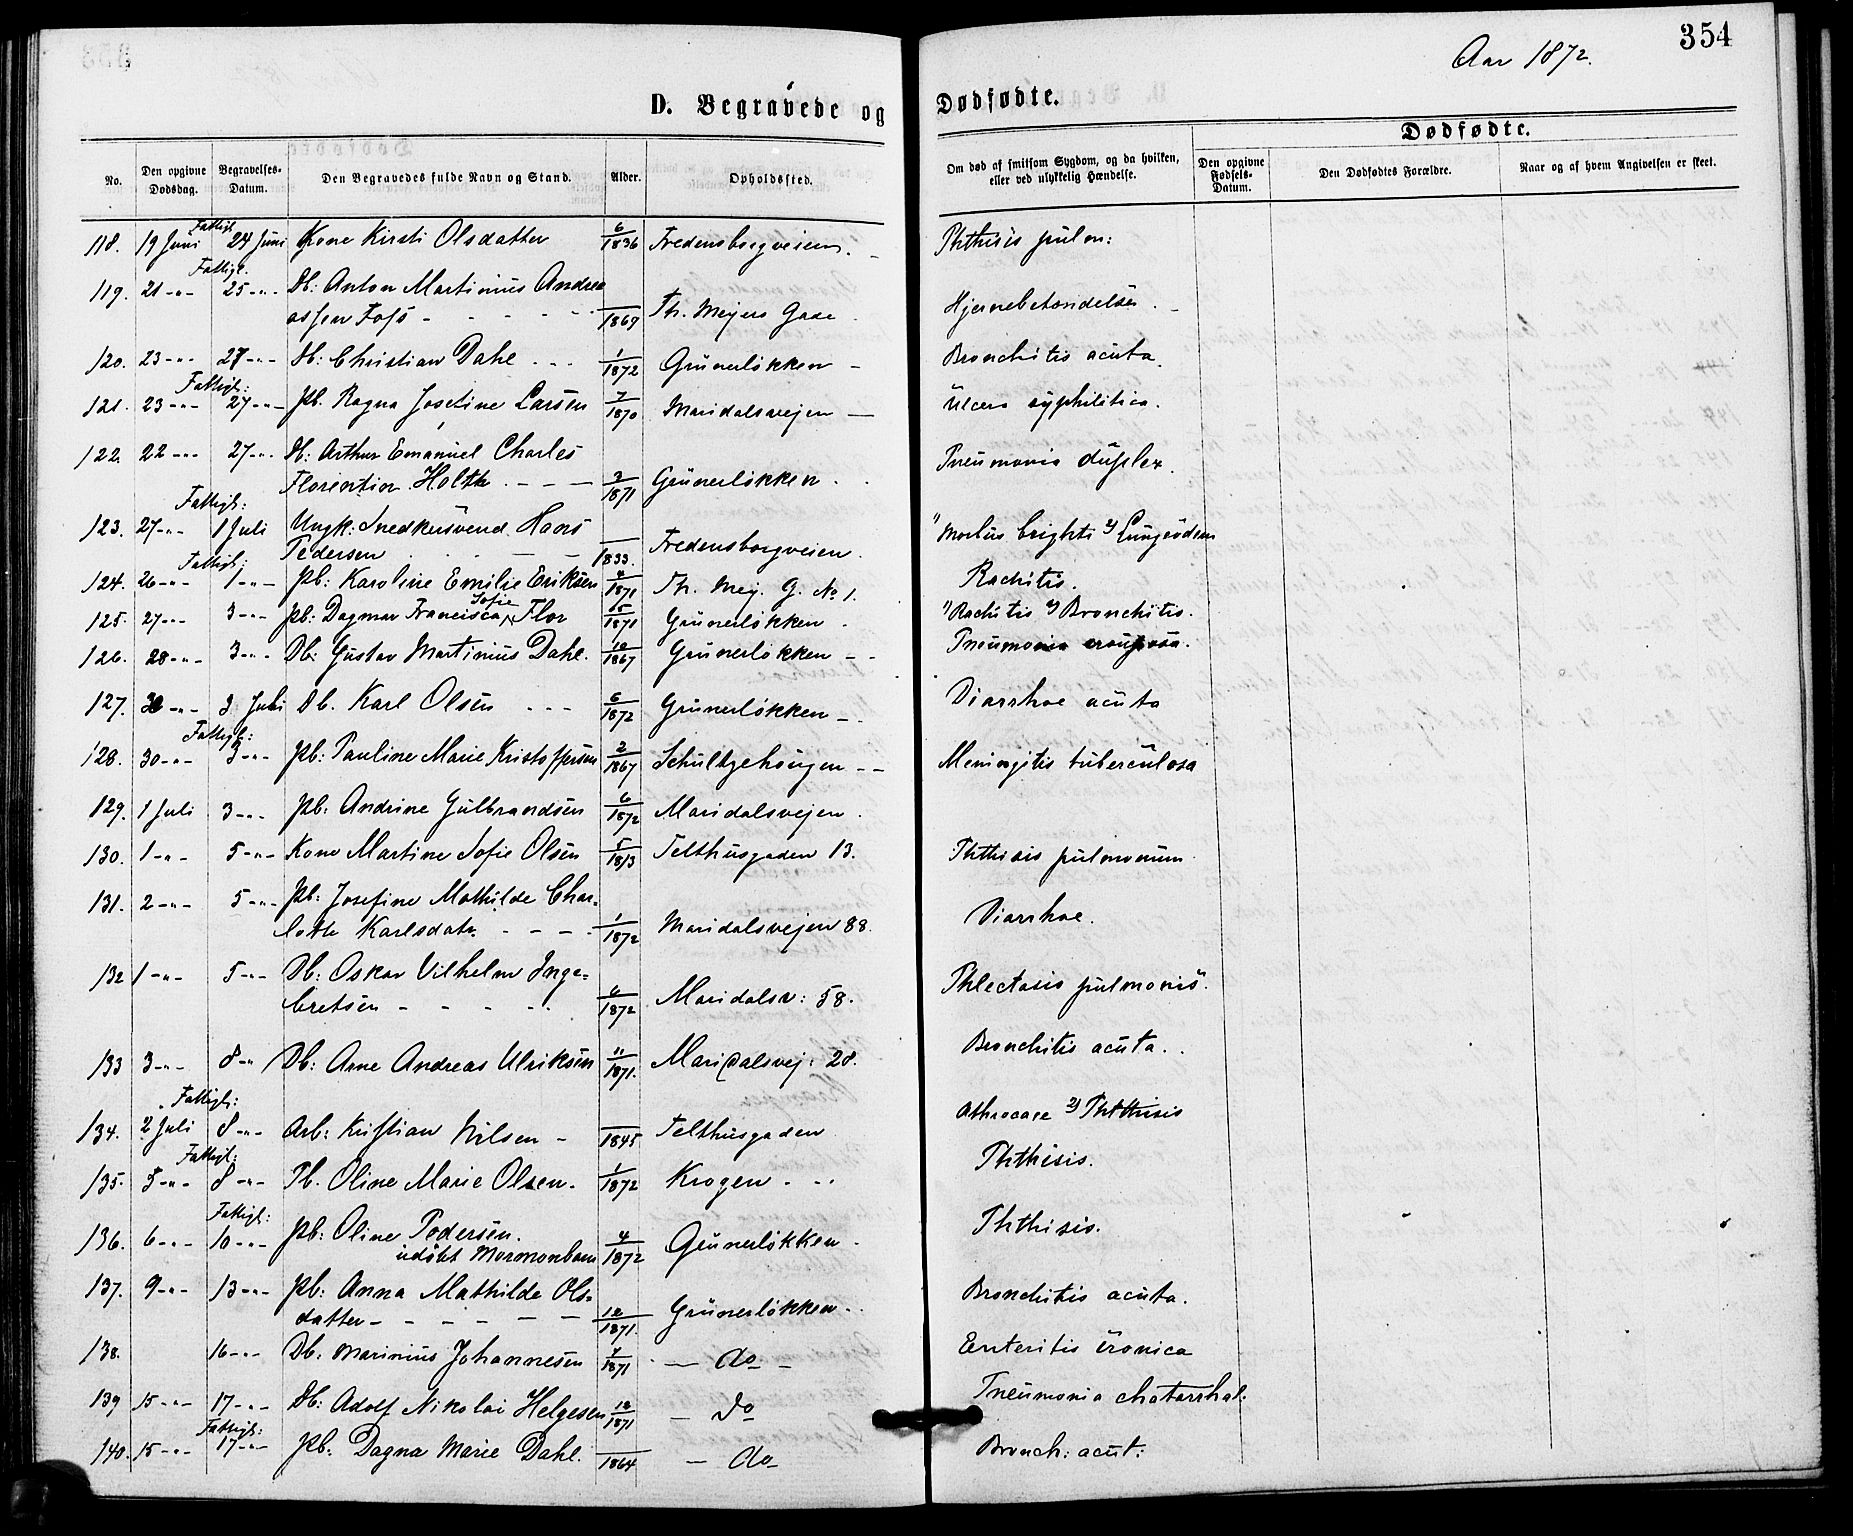 354
Aar 1872.
D. Begravede og Dødfødte.
Dødfødte.
No.
Den opgivne Dødsdag.
Begravelses-Datum.
Den Begravedes fulde Navn og Stand.
Alder.
Opholdssted.
Om død af smitsom Sygdom, og da hvilken, eller ved ulykkelig Hændelse.
Den opgivne Fødsels-Datum.
Den Dødfødtes Forældre.
Naar og af hvem Angivelsen er skeet.
Fattigl.
118. 19 Juni 24 Juni Kone Kirsti Olsdatter 6/1836 Fredensborgveien. Phthisis pulm:
Fattigl.
119. 21 -"- 25 -"- Db: Anton Martinius Andrea
assen Foss - - - - - 1869 Th. Meyers Gade. Hjernebetændelse.
120. 23 -"- 27 -"- Db: Christian Dahl - - - 1/1872 Grünerløkken - Bronchitis acuta.
Fattigl:
121. 23 -"- 27 -"- Pb. Ragna Josefine Larsen 7/1870 Maridalsvejen - Ulcera syphilitica.
122. 22 -"- 27 -"- Db: Arthur Emanuel Charles Pneumonia duplex.
Florentin Holth - - - 2/1871 Grünerløkken.
Fattigl:
123. 27 -"- 1 Juli Ungk: Snedkersvend Hans 1) Morbus brighti 2) Lungeödem
Pedersen - - 1833. Fredensborgveien.
Fattigl:
124. 26 -"- 1 -"- Pb: Karoline Emilie Eriksen 4/1871 Th. Mey. G. No 1. Rachitis.
Sofie
125. 27 -"- 3 -"- Pb: Dagmar Francisca Flor 5/1871 Grünerløkken. 1) Rachitis 2) Bronchitis.
126. 28 -"- 3 -"- Db: Gustav Martinius Dahl. 10/1867 Grünerløkken - - Pneumonia crouposa.
127. 30 -"- 3 Juli Db. Karl Olsen - - - 6/1872 Grünerløkken - Diarrhoe acuta
Fattigl:
128. 30 -"- 3 -"- Pb: Pauline Marie Kristoffersen 2/1867 Schultzehougen - - Meningitis tuberculosa
129. 1 Juli 3 -"- Pb: Andrine Gulbrandsen 6/1872 Maridalsvejen.
130. 1 -"- 5 -"- Kone Martine Sofie Olsen 5/1813 Telthusgaden 13. Phthisis pulmonum
131. 2 -"- 5 -"- Pb: Josefine Mathilde Char-
lotte Karlsdatr. - - - - 1/1872 Maridalsvejen 88. Diarrhoe.
132 1 -"- 5 -"- Db: Oskar Vilhelm Inge= Phlectasis pulmonis.
bretsen - - - - - 6/1872 Maridalsv: 58.
133 3 -"- 8 -"- Db: Arne Andreas Ulriksen 11/1871. Maridalsvej: 28. Bronchitis acuta.
Fattigl:
134. 2 Juli 8 -"- Arb: Kristian Nilsen - 1845 Telthusgaden Athrocace 2) Phthisis
Fattigl:
135. 5 -"- 8 -"- Pb. Oline Marie Olsen. 1/1872 Krogen - Phthisis.
Fattigl:
136. 6 -"- 10 -"- Pb: Oline Pedersen. Phthisis.
udöbt Mormonbarn 4/1872 Grünerløkken.
137. 9 -"- 13 -"- Pb: Anna Mathilde Ols- Bronchitis acuta.
datter - - - - - - 12/1871. Grünerløkken.
138. 16 -"- Db: Marinius Johannesen 7/1871 - do - Enteritis cronica
139 15 -"- 17 -"- Db: Adolf Nikolai Helgesen 12/1871 - do Pneumonia chatarrhal:
Fattigl:
140. 15 -"- 17 -"- Pb: Dagna Marie Dahl. 1864 - do Bronch: acut: